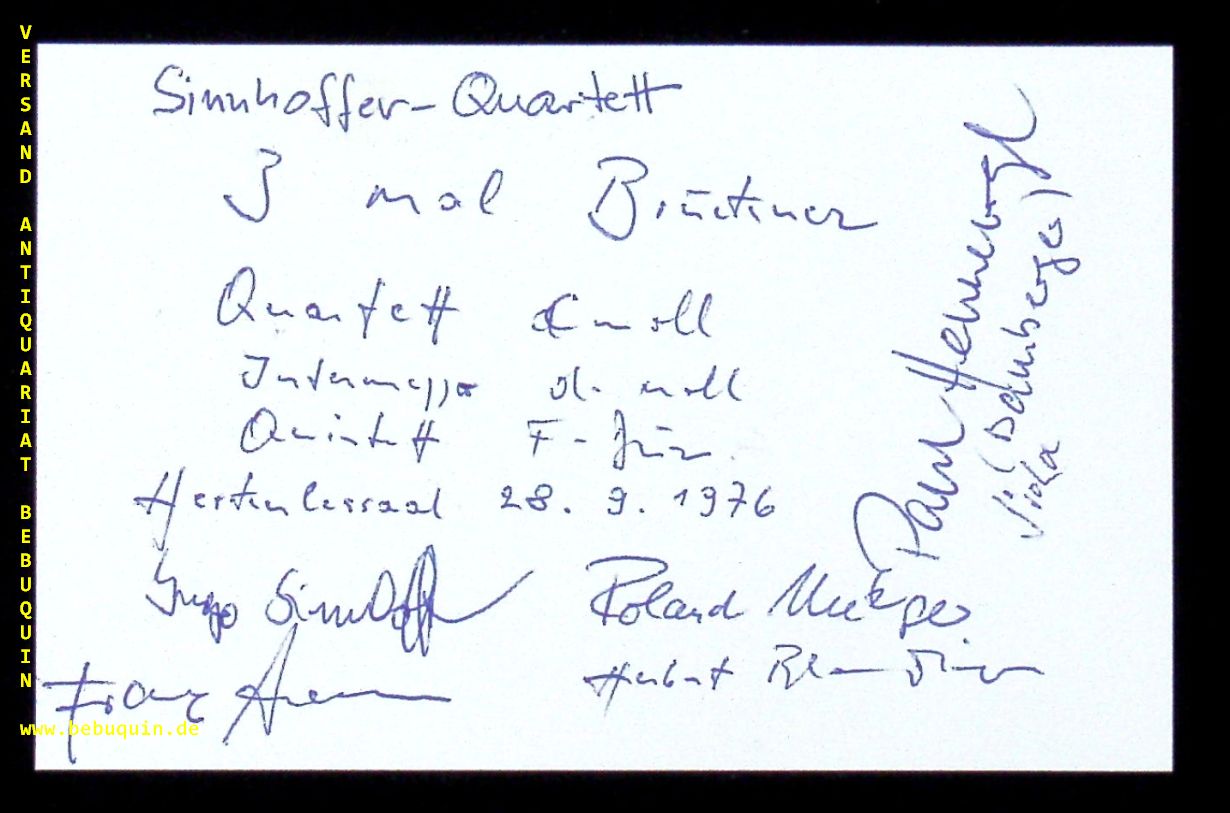 VERSAND ANTIQUARIAT BEBUQUIN
Sinnhoffer-Quartett
3 mal Bruckner
Quartett c moll
Intermezzo d. moll
Quintett F-Dur
Herkulessaal 28. 9. 1976
Ingo Sinnhoffer
Roland Metzger
Franz
Herbert Blendinger
Paul Hennevogl
(Bamberger)
Viola
www.bebuquin.de